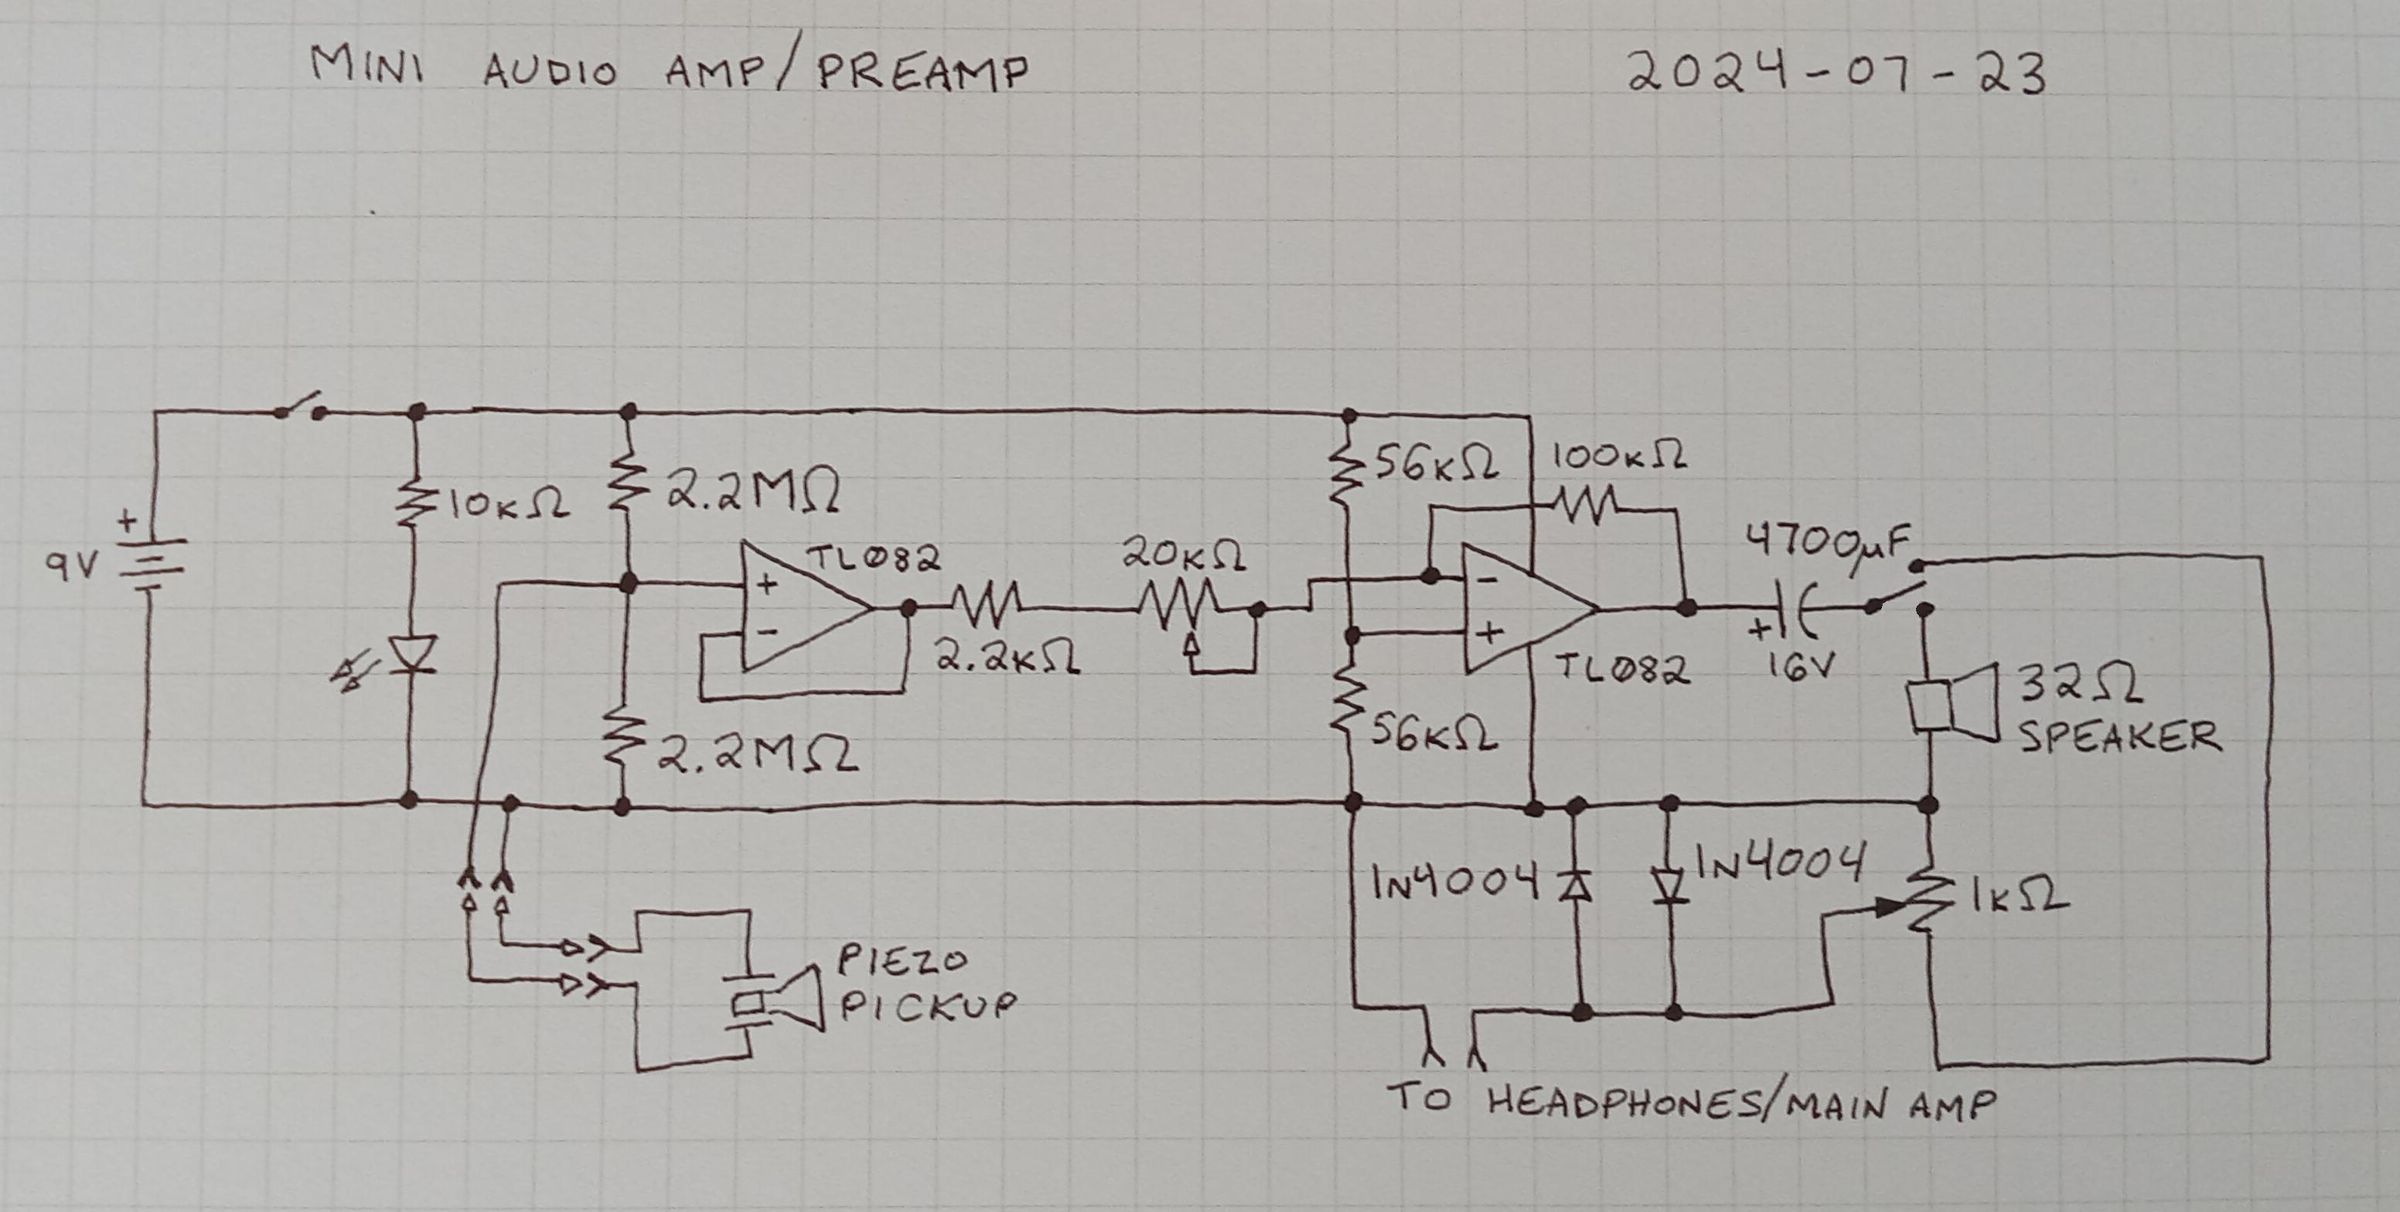 MINI AUDIO AMP/PREAMP
2024-07-23
+
9V
10KΩ
2.2MΩ
2.2MΩ
+
-
TLØ82
2.2KΩ
20KΩ
56KΩ
56KΩ
100KΩ
-
+
TLØ82
4700µF
+
16V
32Ω
SPEAKER
1N4004
1N4004
1KΩ
PIEZO
PICKUP
TO HEADPHONES/MAIN AMP